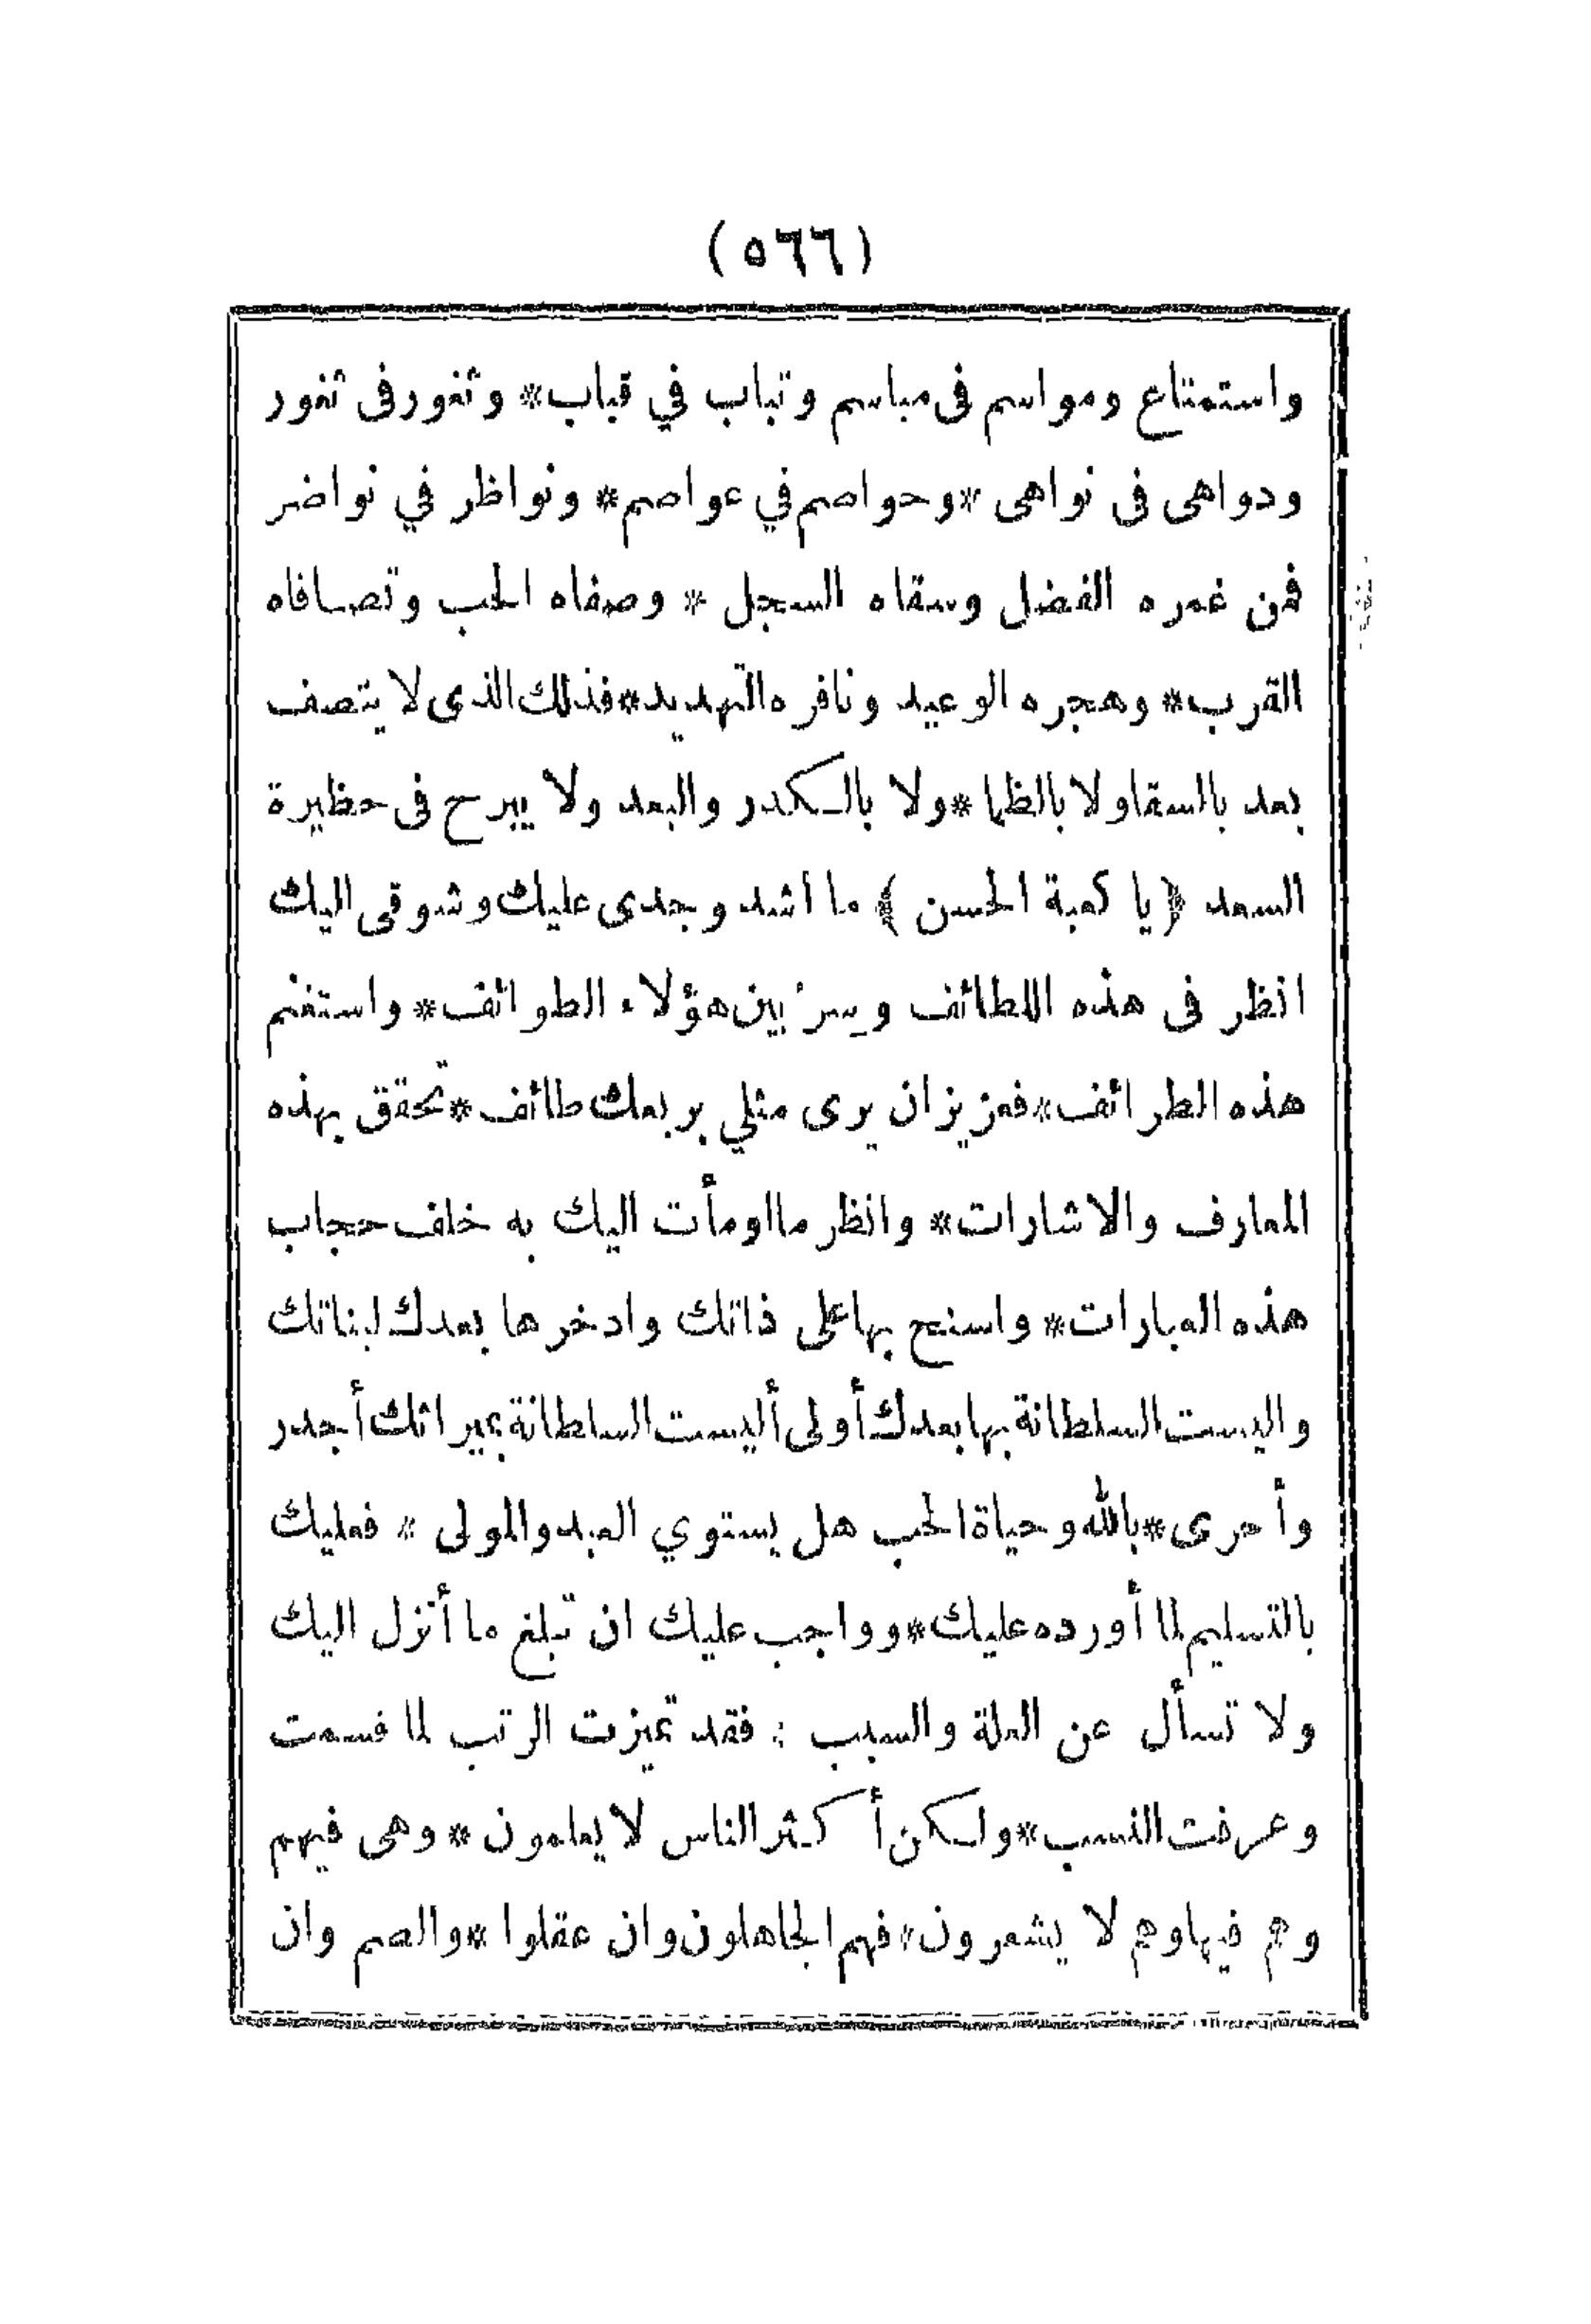 (٥٦٦)
واستمتاع ومواسم فى مباسم وتباب في قباب* وثغور فى ثغور
ودواهى فى نواهى *وحواصم في عواصم* ونواظر في نواضر
فمن غمره الفضل وسقاه السجل * وصفاه الحب وتصافاه
القرب* وهجره الوعيد ونافره التهديد*فذلك الذى لا يتصف
بعد بالسقاولا بالظما *ولا بالكدر والبعد ولا يبرح فى حظيرة
السعد ﴿يا كعبة الحسن﴾ ما اشد وجدى عليك وشوقى اليك
انظر فى هذه اللطائف وسِرْ بين هؤلاء الطوائف* واستغنم
هذه الطرائف*فعزيز ان يرى مثلي بربعك طائف*تحقق بهذه
المعارف والاشارات* وانظر مااومأت اليك به خلف حجاب
هذه العبارات* واسنح بهاعلى ذاتك وادخرها بعدك لبناتك
واليست السلطانة بهابعدك أولى أليست السلطانة بميراثك أجدر
وأحرى*بالله وحياة الحب هل يستوي العبد والمولى * فعليك
بالتسليم لما أورده عليك*وواجب عليك ان تبلغ ما أنزل اليك
ولا تسأل عن العلة والسبب * فقد تميزت الرتب لما قسمت
وعرفت النسب*ولكن أكثر الناس لا يعلمون* وهى فيهم
وهم فيهاوهم لا يشعرون*فهم الجاهلون وان عقلوا *والصم وان